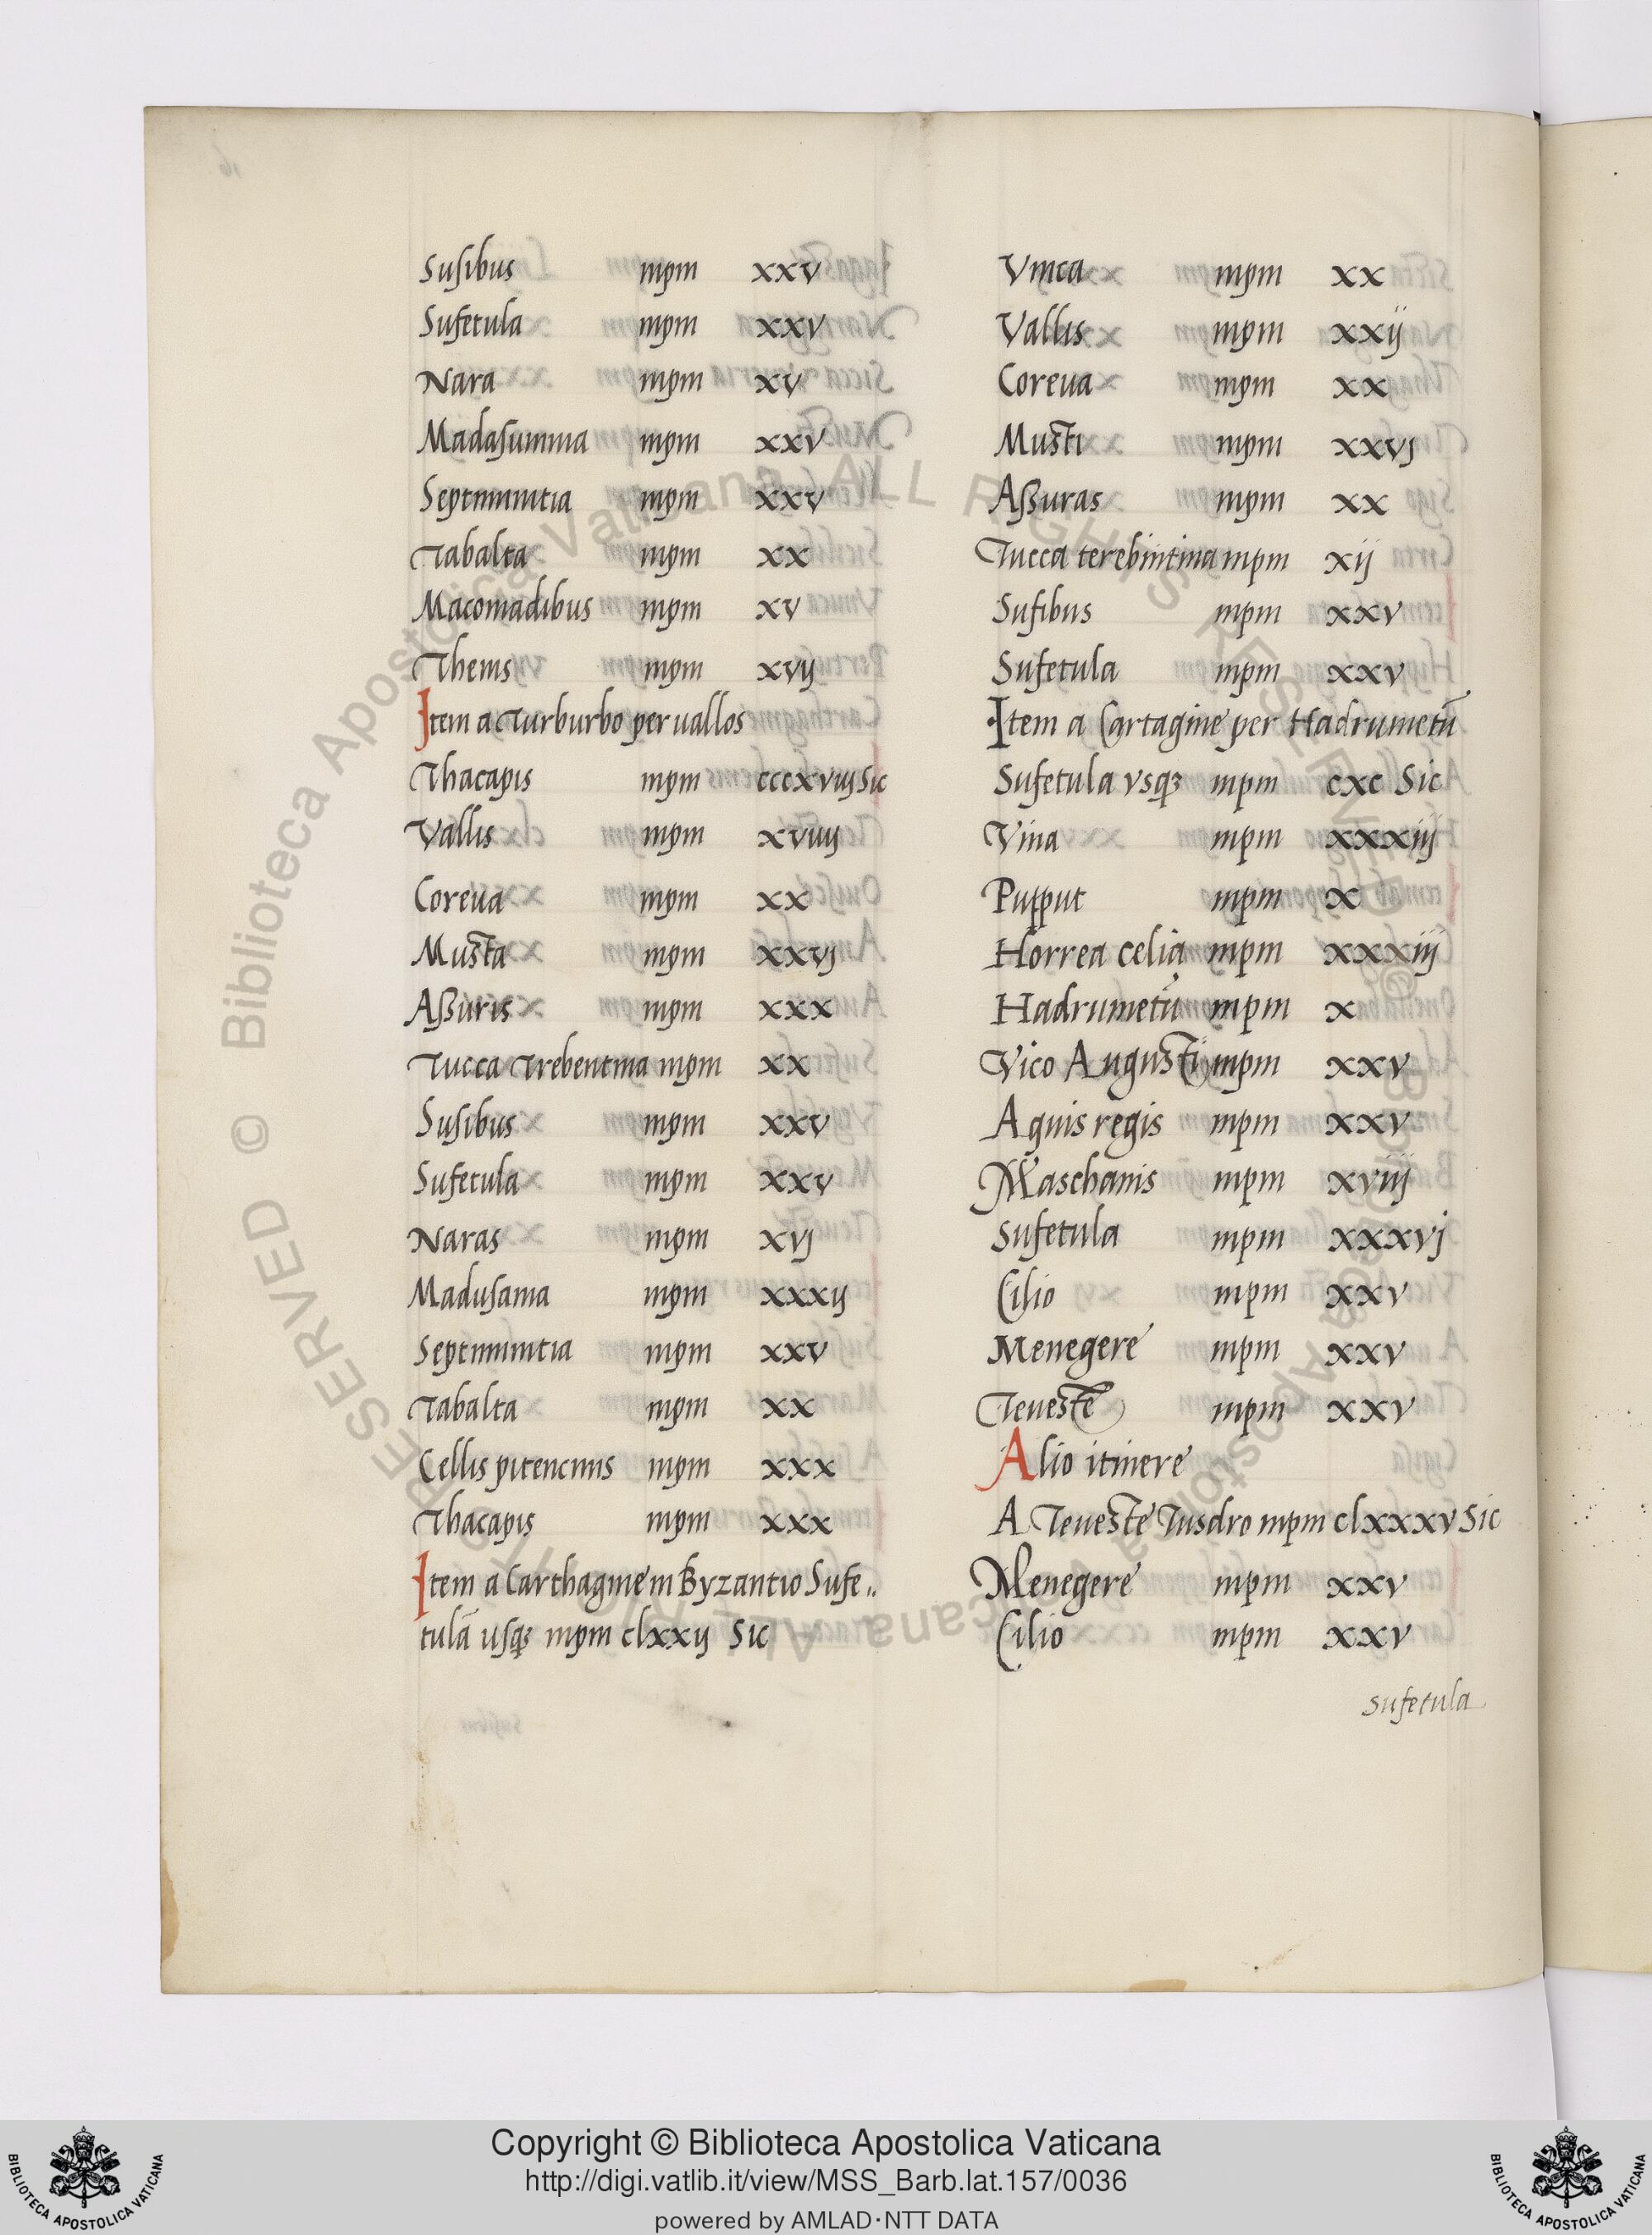 Susibus mpm xxv
Sufetula mpm xxv
Nara mpm xv
Madasumma mpm xxv
Septiminicia mpm xxv
Tabalta mpm xx
Macomadibus mpm xv
Thenis mpm xvij
Item a Turburbo per vallos
Thacapis mpm cccxviij Sic
Vallis mpm xviij
Coreva mpm xx
Musta mpm xxvj
Assuris mpm xxx
Tucca Trebentina mpm xx
Susibus mpm xxv
Sufetula mpm xxv
Naras mpm xvj
Madusama mpm xxxij
Septiminicia mpm xxv
Tabalta mpm xx
Cellis picencinis mpm xxx
Thacapis mpm xxx
Item a Carthagine in Byzantio Sufe..
tulā usqꝫ mpm clxxij Sic
Vnica mpm xx
Vallis mpm xxij
Coreua mpm xx
Musti mpm xxvj
Aßuras mpm xx
Tucca terebintina mpm xij
Sufibus mpm xxv
Sufetula mpm xxv
Item a Cartagine per Hadrumetū
Sufetula vsqꝫ mpm cxc Sic
Vina mpm xxxiij
Pupput mpm x
Horrea celia mpm xxxiij
Hadrumetū mpm x
Vico Augusti mpm xxv
Aquis regis mpm xxv
Maschanis mpm xviij
Sufetula mpm xxxvj
Cilio mpm xxv
Menegere mpm xxv
Teueste mpm xxv
Alio itinere
A Teueste Tusdro mpm clxxxv Sic
Menegere mpm xxv
Cilio mpm xxv
sufetula
© Biblioteca Apostolica Vaticana ALL RIGHTS RESERVED
Copyright © Biblioteca Apostolica Vaticana
http://digi.vatlib.it/view/MSS_Barb.lat.157/0036
powered by AMLAD·NTT DATA
BIBLIOTECA APOSTOLICA VATICANA
BIBLIOTECA APOSTOLICA VATICANA